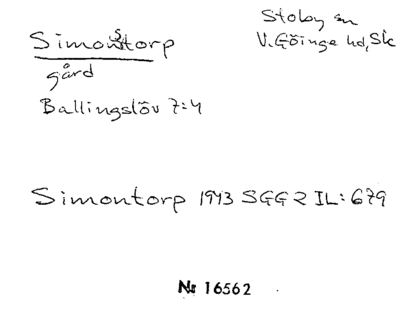 Simonstorp
gård
Ballingslöv 7:4
Stoby sn
V. Göinge hd, Sk
Simontorp 1943 SGG 2 IL: 679
Nr 16562